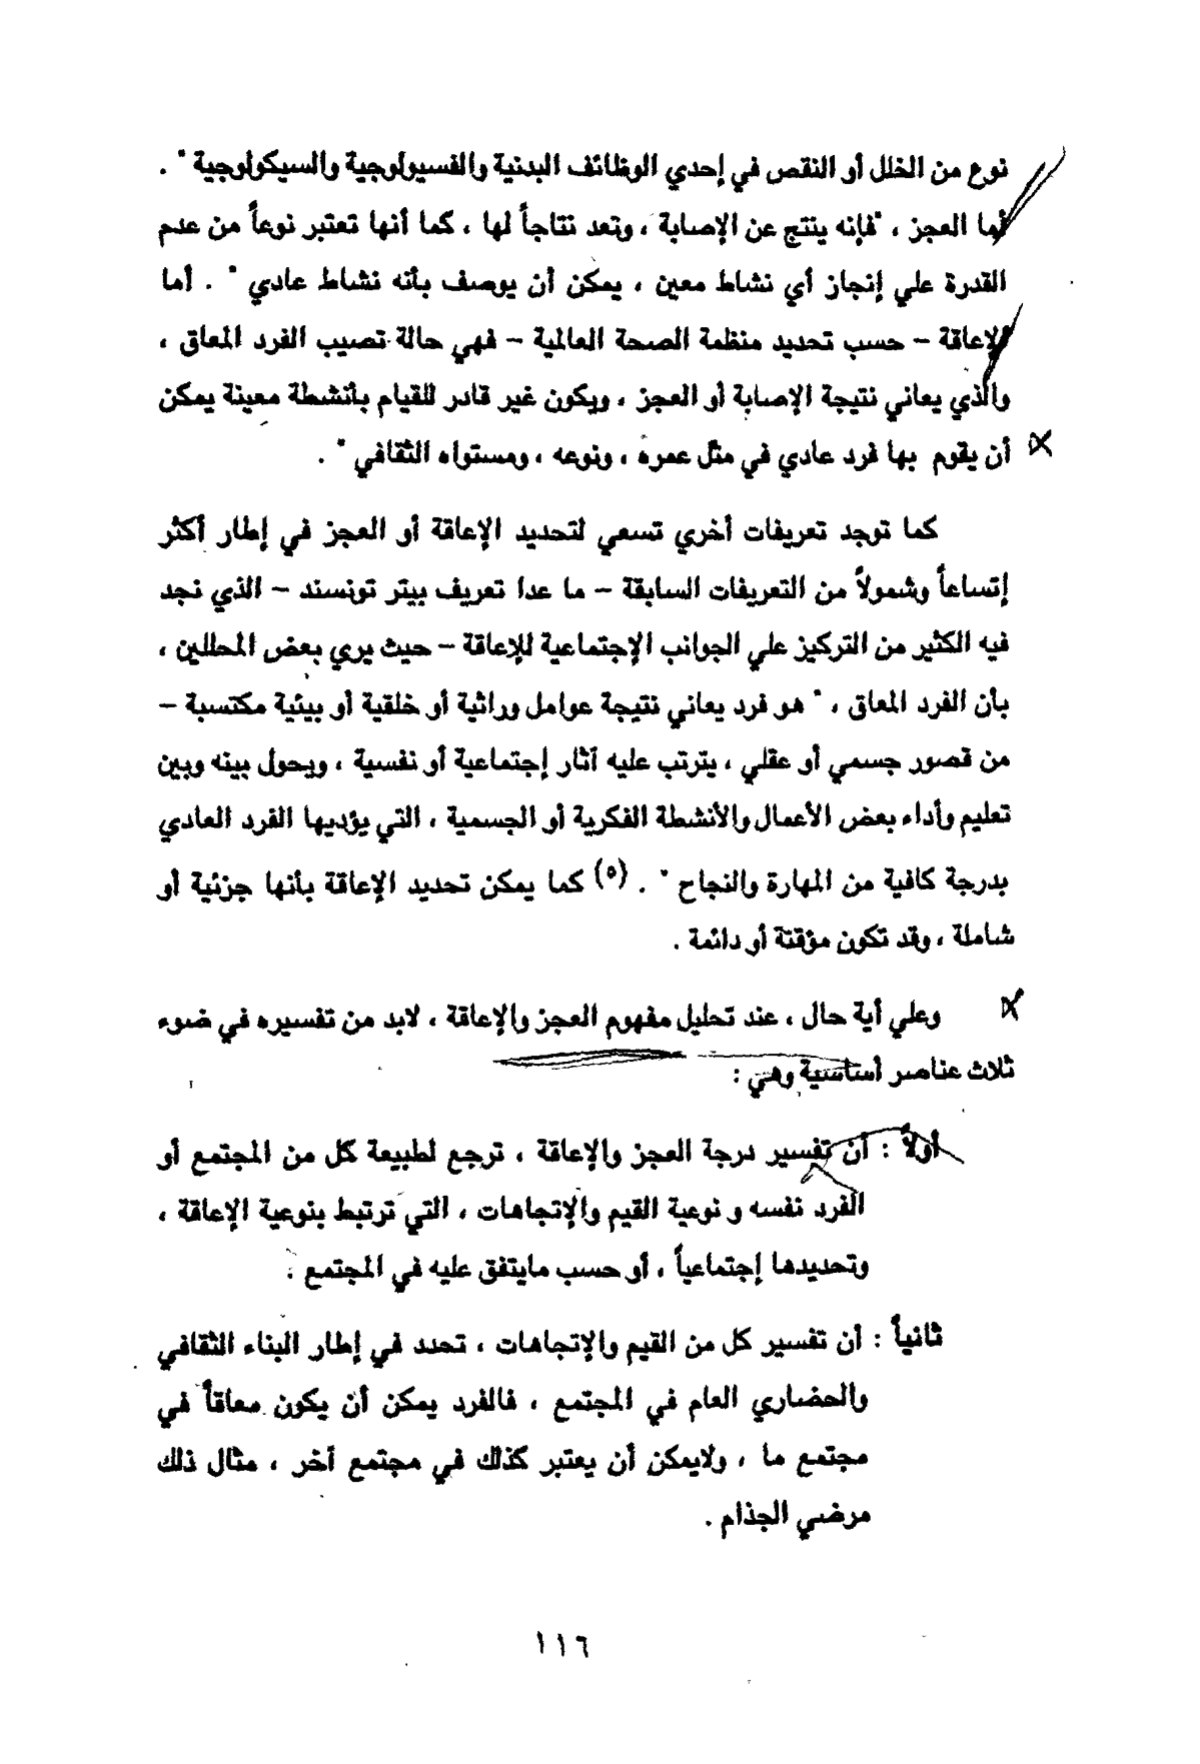 نوع من الخلل أو النقص في إحدي الوظائف البدنية والفسيولوجية والسيكولوجية " .
أما العجز ، "فإنه ينتج عن الإصابة ، وتعد نتاجاً لها ، كما أنها تعتبر نوعاً من عدم
القدرة علي إنجاز أي نشاط معين ، يمكن أن يوصف بأنه نشاط عادي " . أما
الإعاقة - حسب تحديد منظمة الصحة العالمية - فهي حالة تصيب الفرد المعاق ،
والذي يعاني نتيجة الإصابة أو العجز ، ويكون غير قادر للقيام بأنشطة معينة يمكن
أن يقوم بها فرد عادي في مثل عمره ، ونوعه ، ومستواه الثقافي " .
كما توجد تعريفات أخري تسعي لتحديد الإعاقة أو العجز في إطار أكثر
إتساعاً وشمولاً من التعريفات السابقة - ما عدا تعريف بيتر تونسند - الذي نجد
فيه الكثير من التركيز علي الجوانب الإجتماعية للإعاقة - حيث يري بعض المحللين ،
بأن الفرد المعاق ، " هو فرد يعاني نتيجة عوامل وراثية أو خلقية أو بيئية مكتسبة -
من قصور جسمي أو عقلي ، يترتب عليه آثار إجتماعية أو نفسية ، ويحول بينه وبين
تعليم وأداء بعض الأعمال والأنشطة الفكرية أو الجسمية ، التي يؤديها الفرد العادي
بدرجة كافية من المهارة والنجاح " . (٥) كما يمكن تحديد الإعاقة بأنها جزئية أو
شاملة ، وقد تكون مؤقتة أو دائمة .
وعلي أية حال ، عند تحليل مفهوم العجز والإعاقة ، لابد من تفسيره في ضوء
ثلاث عناصر أساسية وهي :
أولاً : أن تفسير درجة العجز والإعاقة ، ترجع لطبيعة كل من المجتمع أو
الفرد نفسه و نوعية القيم والإتجاهات ، التي ترتبط بنوعية الإعاقة ،
وتحديدها إجتماعياً ، أو حسب مايتفق عليه في المجتمع .
ثانياً : أن تفسير كل من القيم والإتجاهات ، تحدد في إطار البناء الثقافي
والحضاري العام في المجتمع ، فالفرد يمكن أن يكون معاقاً في
مجتمع ما ، ولايمكن أن يعتبر كذلك في مجتمع آخر ، مثال ذلك
مرضي الجذام .
١١٦